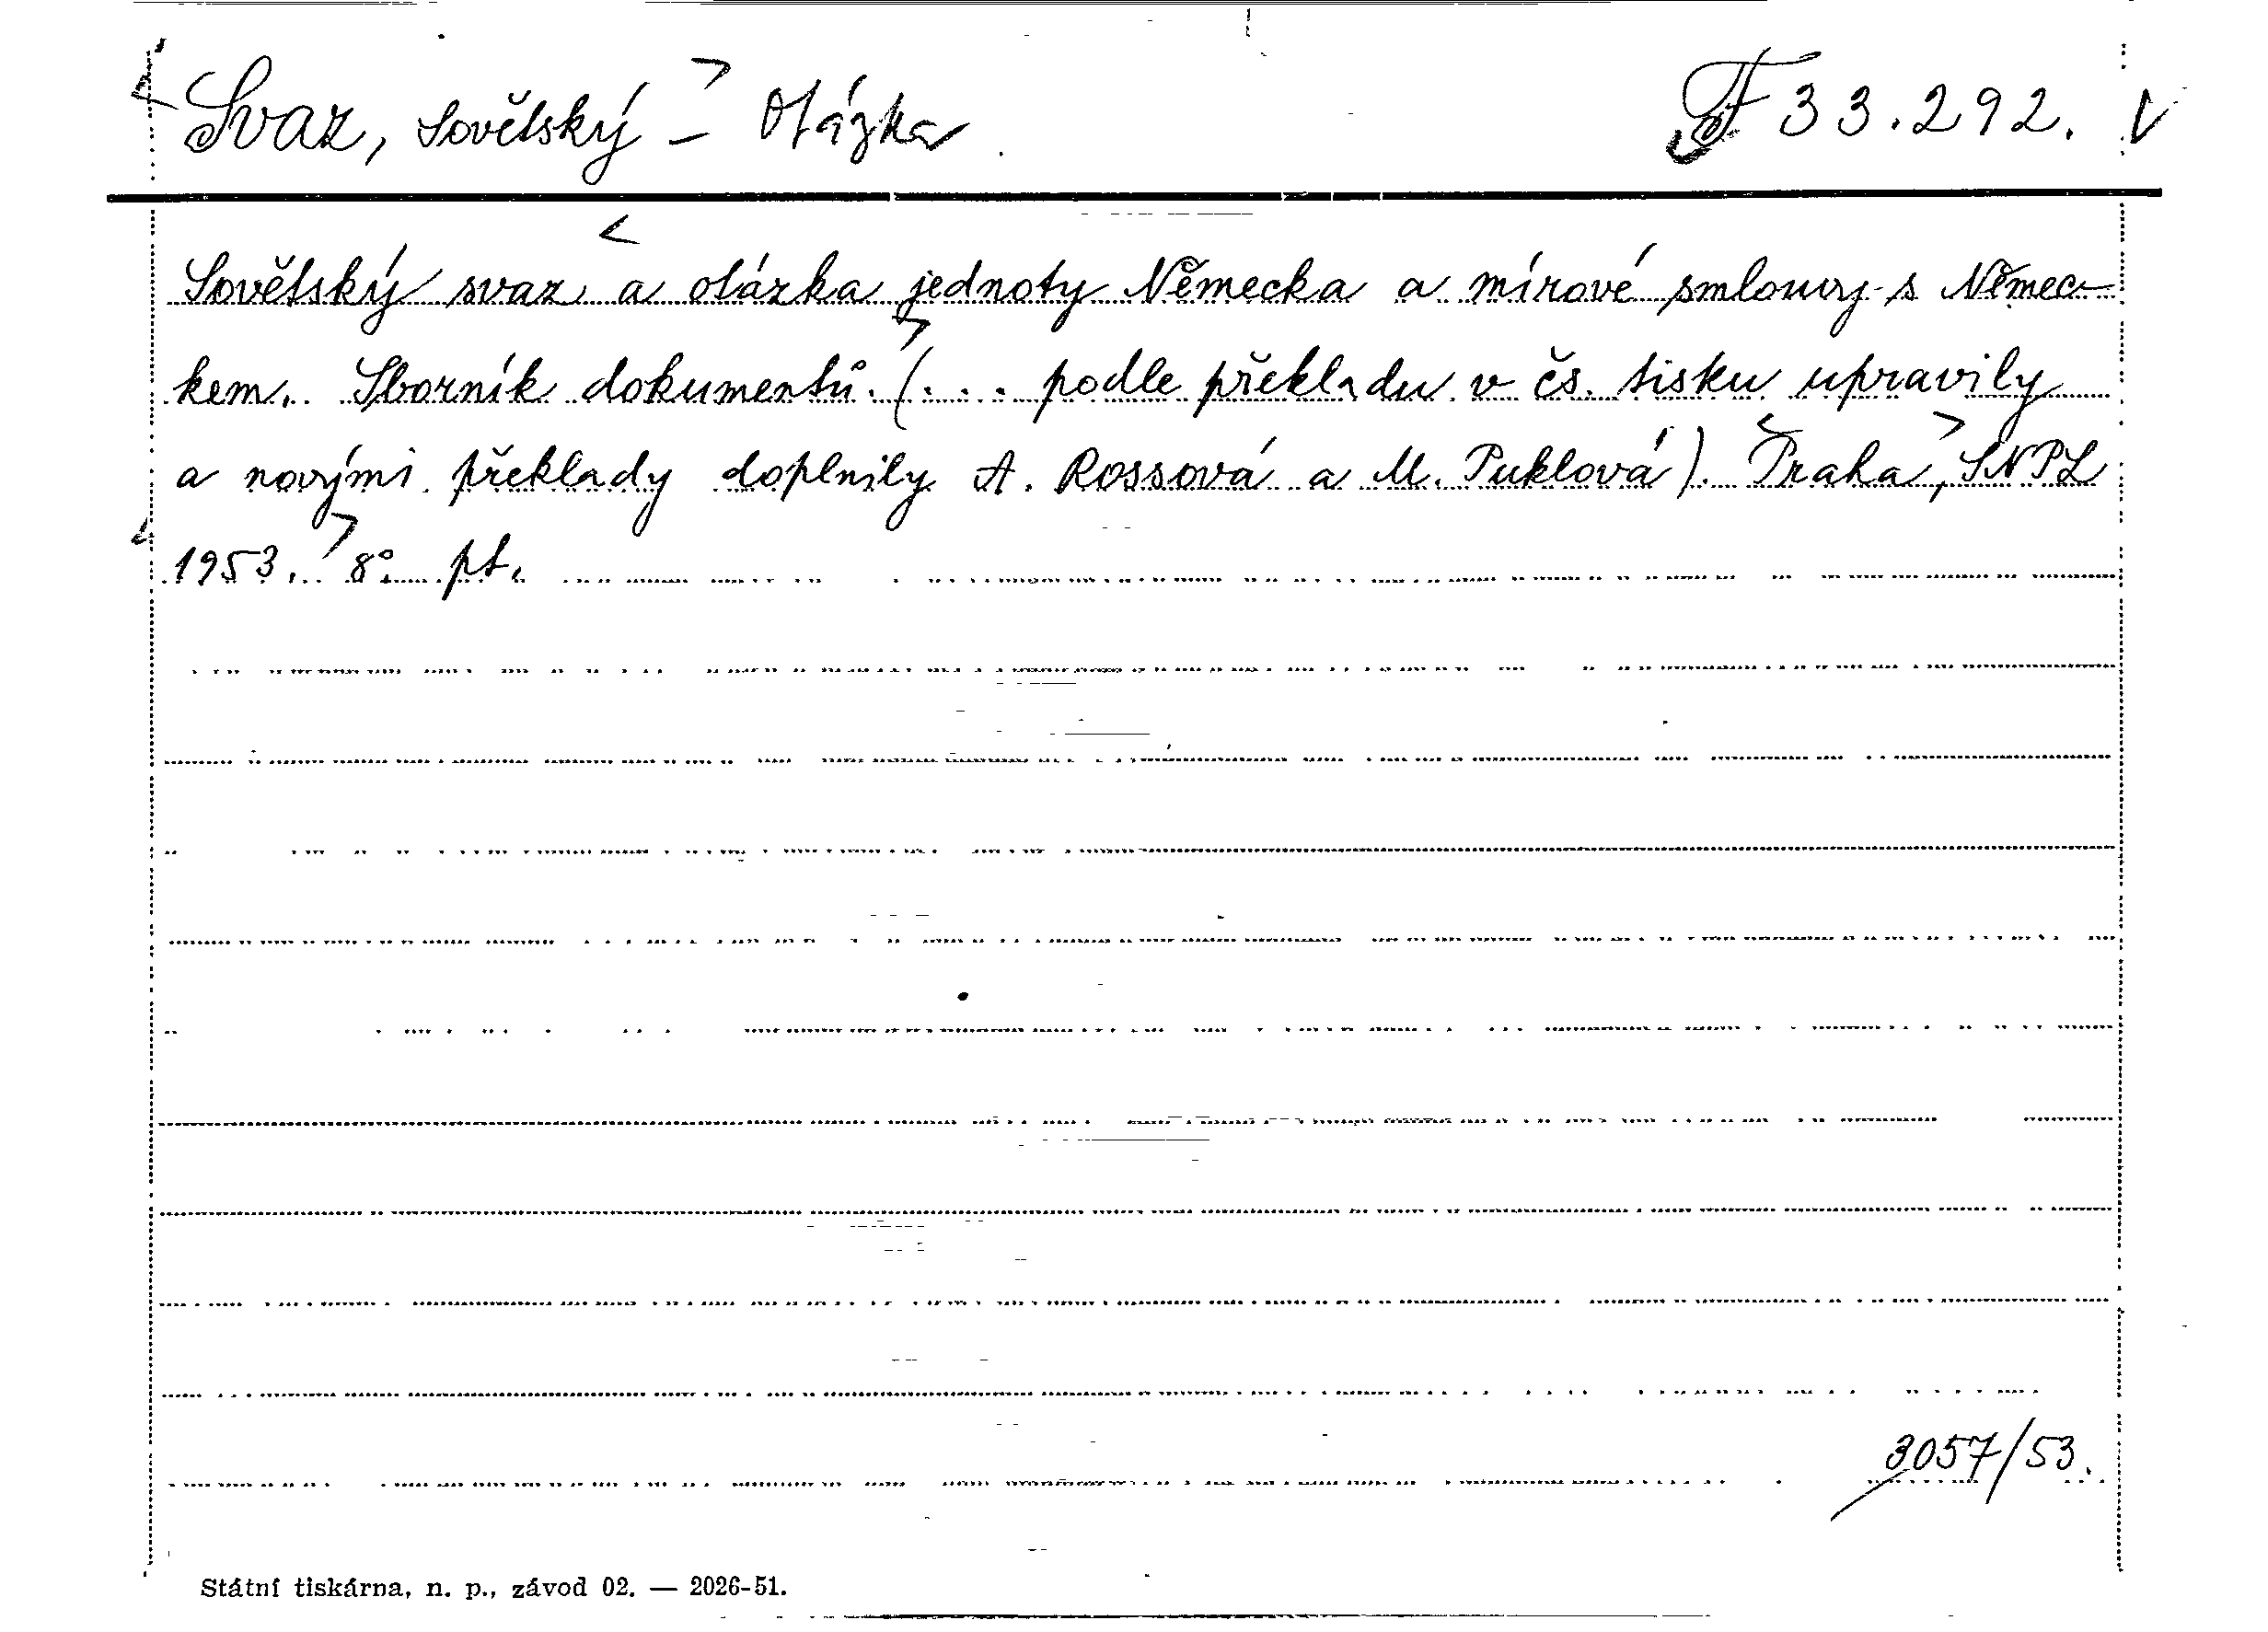 Svaz, Sovětský – Otázka F 33.292. V
Sovětský svaz a otázka jednoty Německa a mírové smlouvy s Němec-
kem. Sborník dokumentů. (... podle překladu v čs. tisku upravily
a novými překlady doplnily A. Rossová a M. Puklová). Praha, SNPL
1953. 8° pt.
3057/53.
Státní tiskárna, n. p., závod 02. — 2026-51.